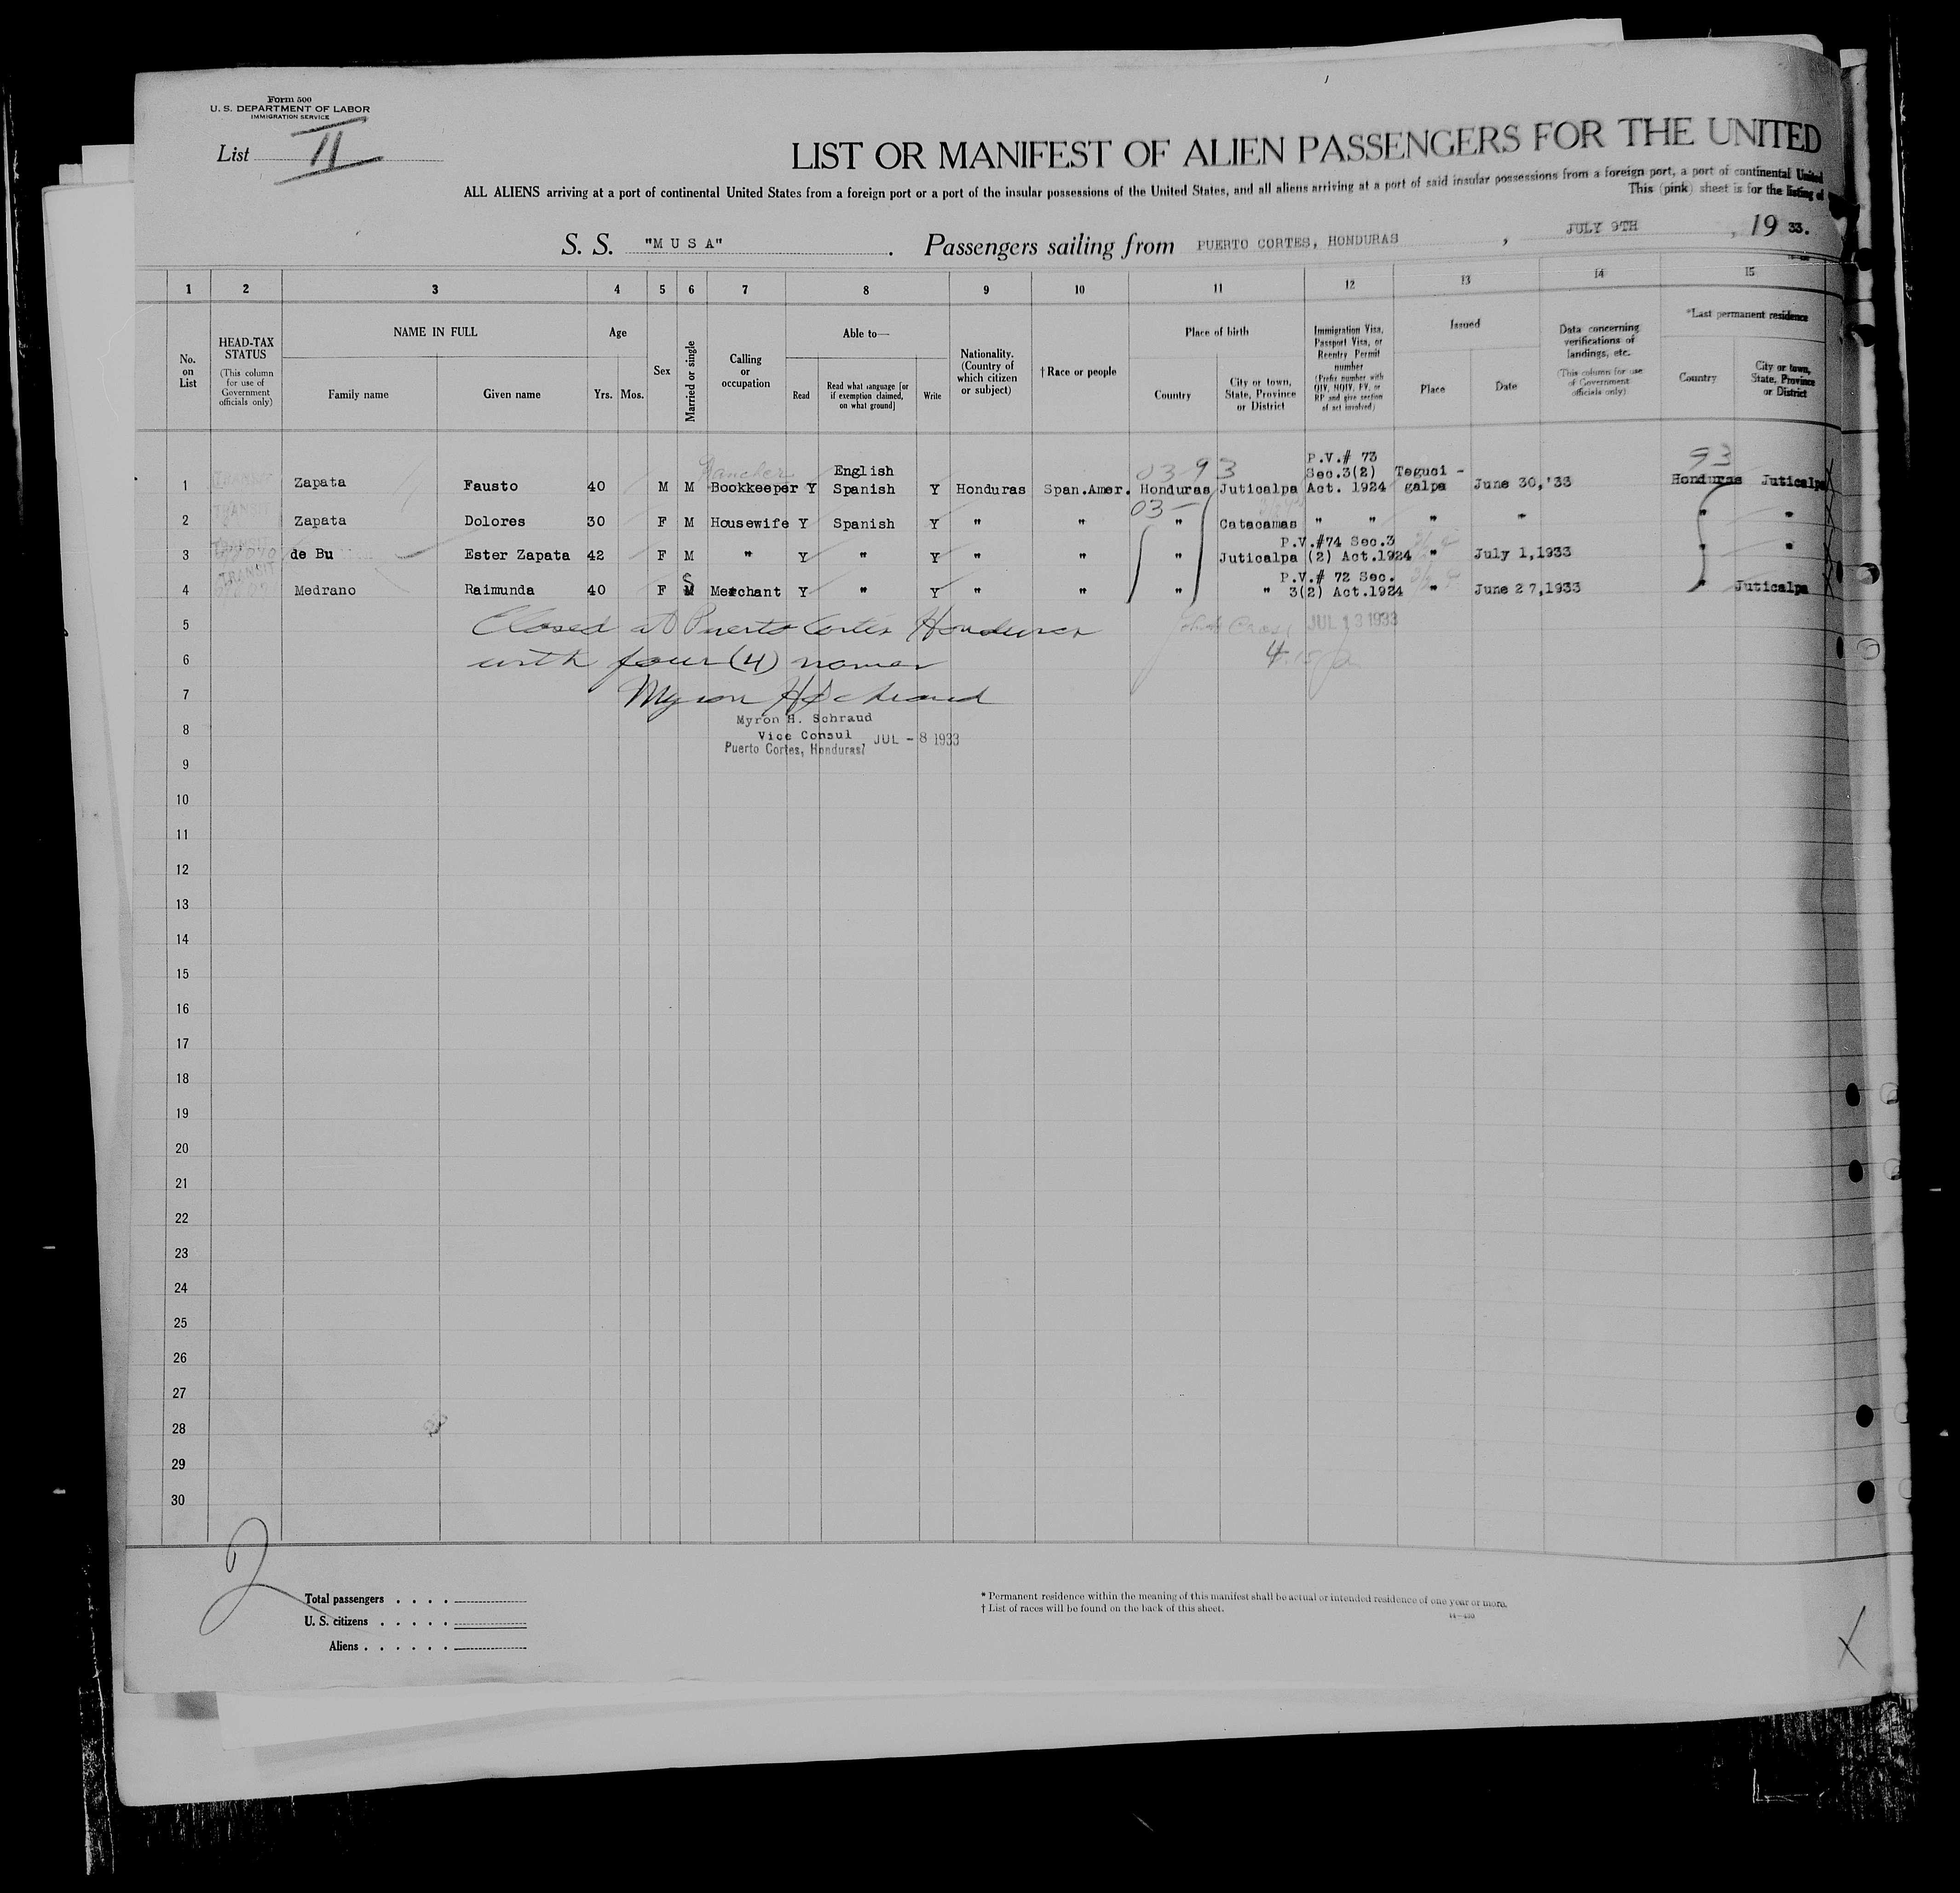 Form 500
U. S. DEPARTMENT OF LABOR
IMMIGRATION SERVICE
List II
LIST OR MANIFEST OF ALIEN PASSENGERS FOR THE UNITED
ALL ALIENS arriving at a port of continental United States from a foreign port or a port of the insular possessions of the United States, and all aliens arriving at a port of said insular possessions from a foreign port, a port of continental United
This (pink) sheet is for the listing of
S. S. "M U S A". Passengers sailing from PUERTO CORTES, HONDURAS, JULY 9TH, 19 33.
1 2 3 4 5 6 7 8 9 10 11 12 13 14 15
No. on List
HEAD-TAX STATUS (This column for use of Government officials only)
NAME IN FULL Family name Given name
Age Yrs. Mos.
Sex
Married or single
Calling or occupation
Able to— Read Read what language [or if exemption claimed, on what ground] Write
Nationality. (Country of which citizen or subject)
†Race or people
Place of birth Country City or town, State, Province or District
Immigration Visa, Passport Visa, or Reentry Permit number (Prefix number with QIV, NQIV, PV, or RP and give section of act involved)
Issued Place Date
Data concerning verifications of landings, etc. (This column for use of Government officials only)
*Last permanent residence Country City or town, State, Province or District
03 93 93
1 TRANSIT Zapata Fausto 40 M M Rancher Bookkeeper Y English Spanish Y Honduras Span.Amer. Honduras Juticalpa P.V.# 73 Sec.3(2) Act. 1924 Teguci-galpa June 30,'33 Honduras Juticalpa
03 —
2 TRANSIT Zapata Dolores 30 F M Housewife Y Spanish Y " " " Catacamas " " " " " "
3 TRANSIT de Bu Ester Zapata 42 F M " Y " Y " " " Juticalpa P.V.#74 Sec.3 (2) Act.1924 " July 1,1933 " "
4 TRANSIT Medrano Raimunda 40 F M S Merchant Y " Y " " " " P.V.# 72 Sec. 3(2) Act.1924 " June 27,1933 " Juticalpa
5 Closed at Puerto Cortes Honduras JUL 13 1933
6 with four (4) names 4
7 Myron H Schraud
Myron H. Schraud
8 Vice Consul JUL - 8 1933
Puerto Cortes, Honduras
9
10
11
12
13
14
15
16
17
18
19
20
21
22
23
24
25
26
27
28
29
30
2
Total passengers . . . .
U. S. citizens . . . . .
Aliens . . . . . .
* Permanent residence within the meaning of this manifest shall be actual or intended residence of one year or more.
† List of races will be found on the back of this sheet.
14—430
X